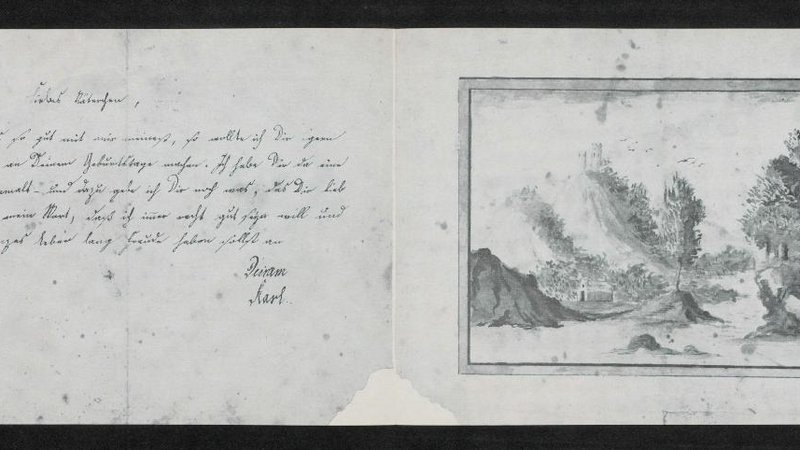 Liebes Väterchen,
so gut mit mir meinest, so wollte ich Dir gern
an Deinem Geburtstage machen. Ich habe Dir da eine
emalt – und dazu gebe ich Dir noch was, das Dir lieb
mein Wort, daß ich immer recht gut seyn will und
zes Leben lang Freude haben sollst an
Deinem
Karl.